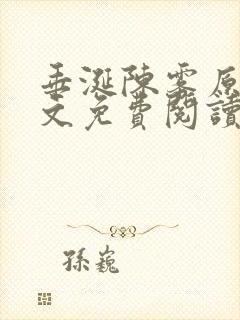 垂涎陳雾原
文免費閱讀
孫巍